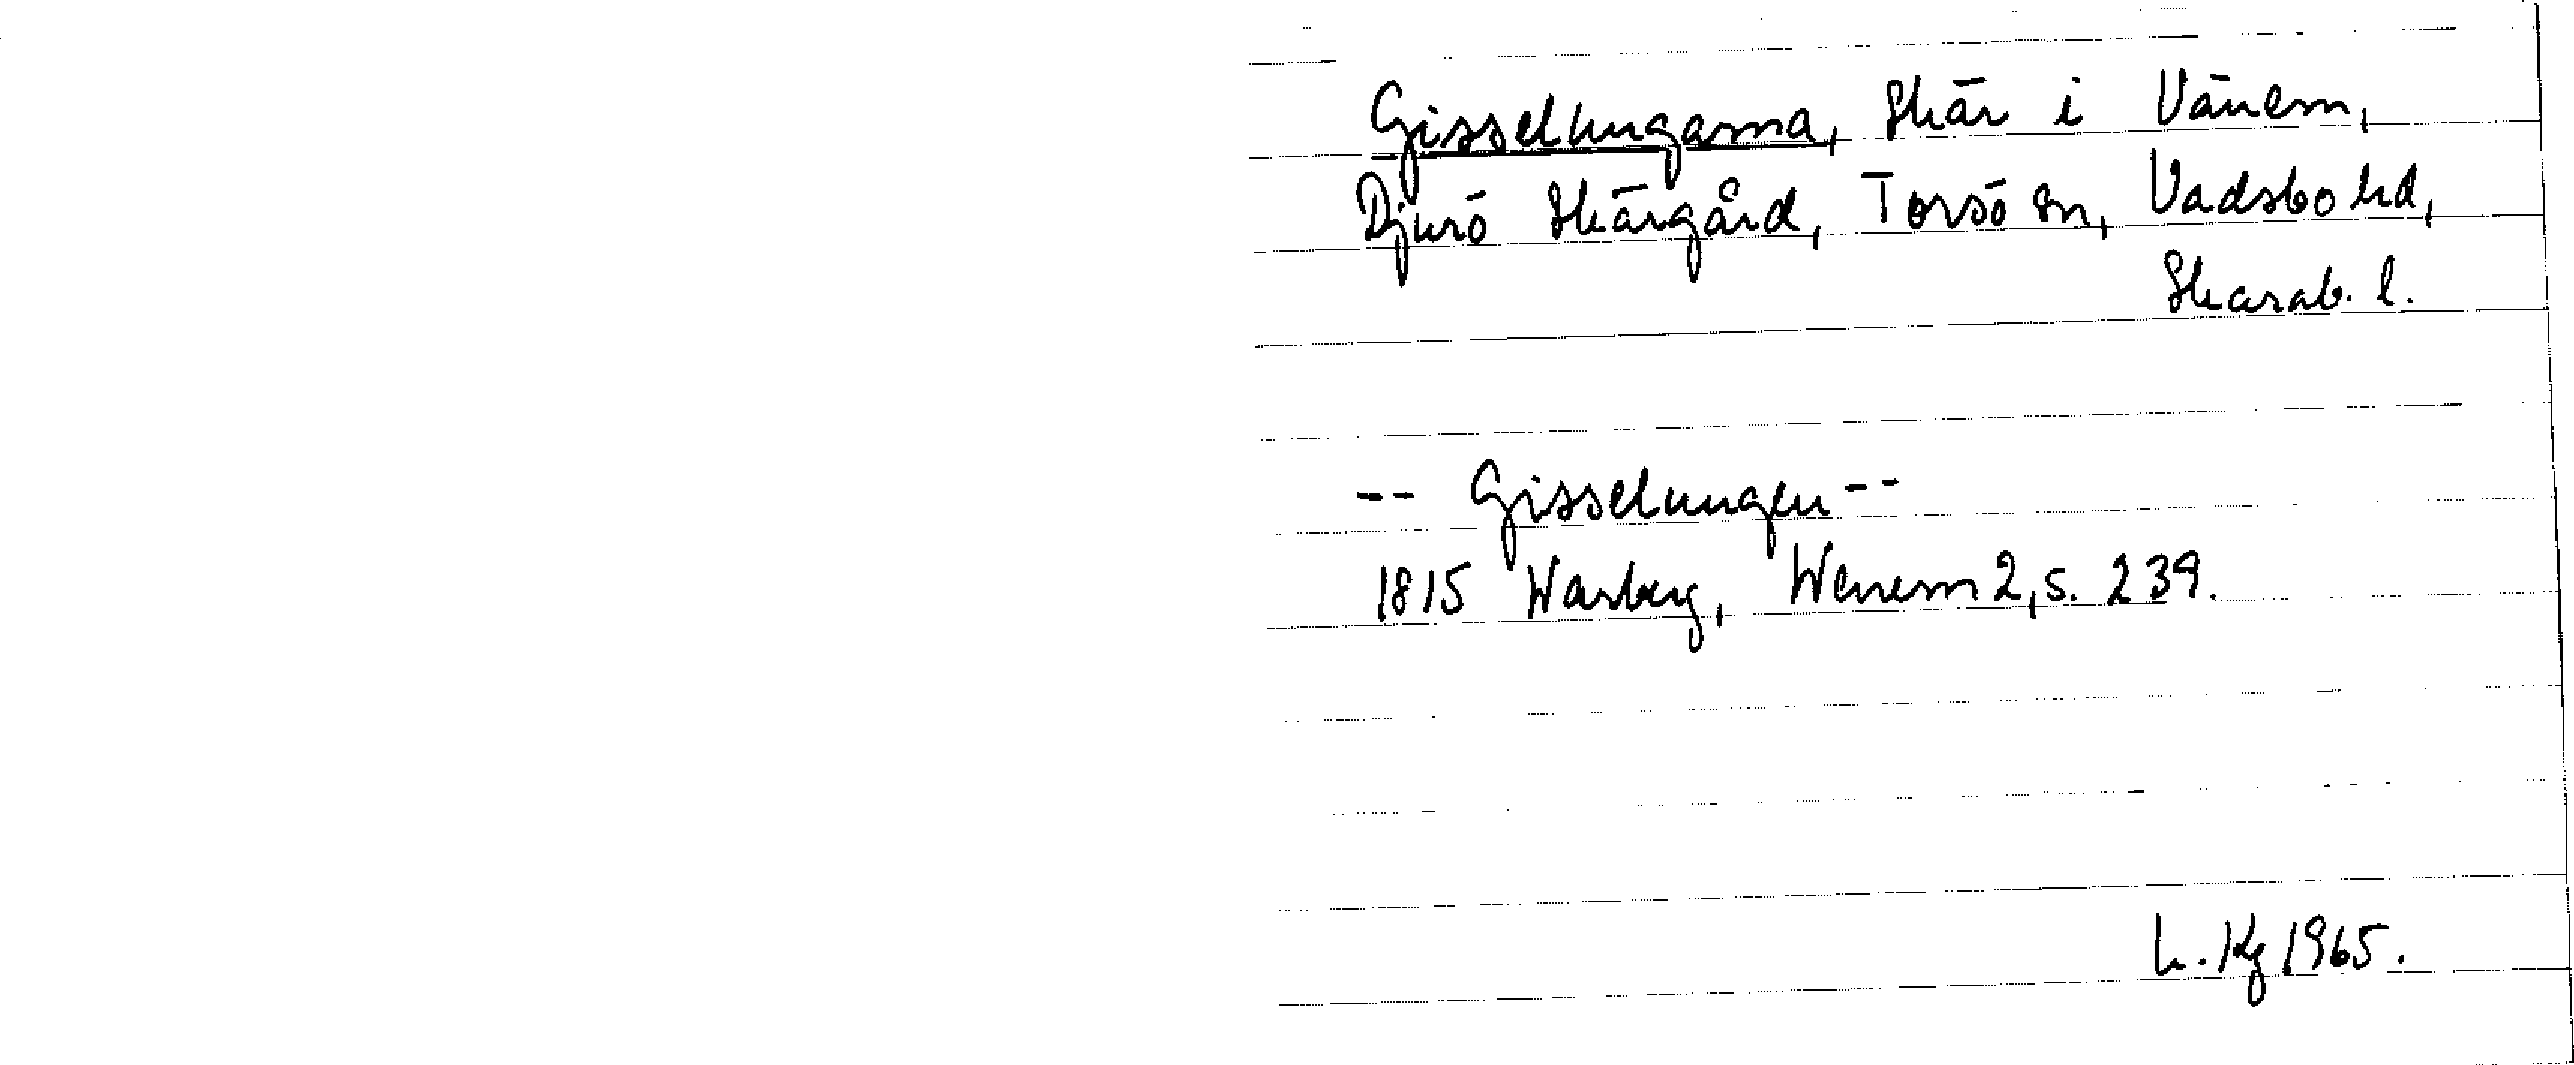 Gisselungarna, Skär i Vänern,
Djurö Skärgård, Torsö sn, Vadsbo hd,
Skarab. l.
-- Gisselungen --
1815 Warberg, Wenern 2, s. 239.
L. Kg 1965.